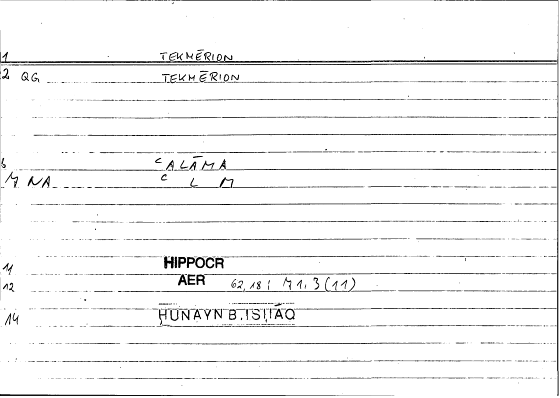 1 TEKMĒRION
2 QG TEKMĒRION
6 ʿALĀMA
7 NA ʿ L M
11 HIPPOCR
12 AER 62,18; 71,3(11)
14 ḤUNAYN B. ISḤĀQ